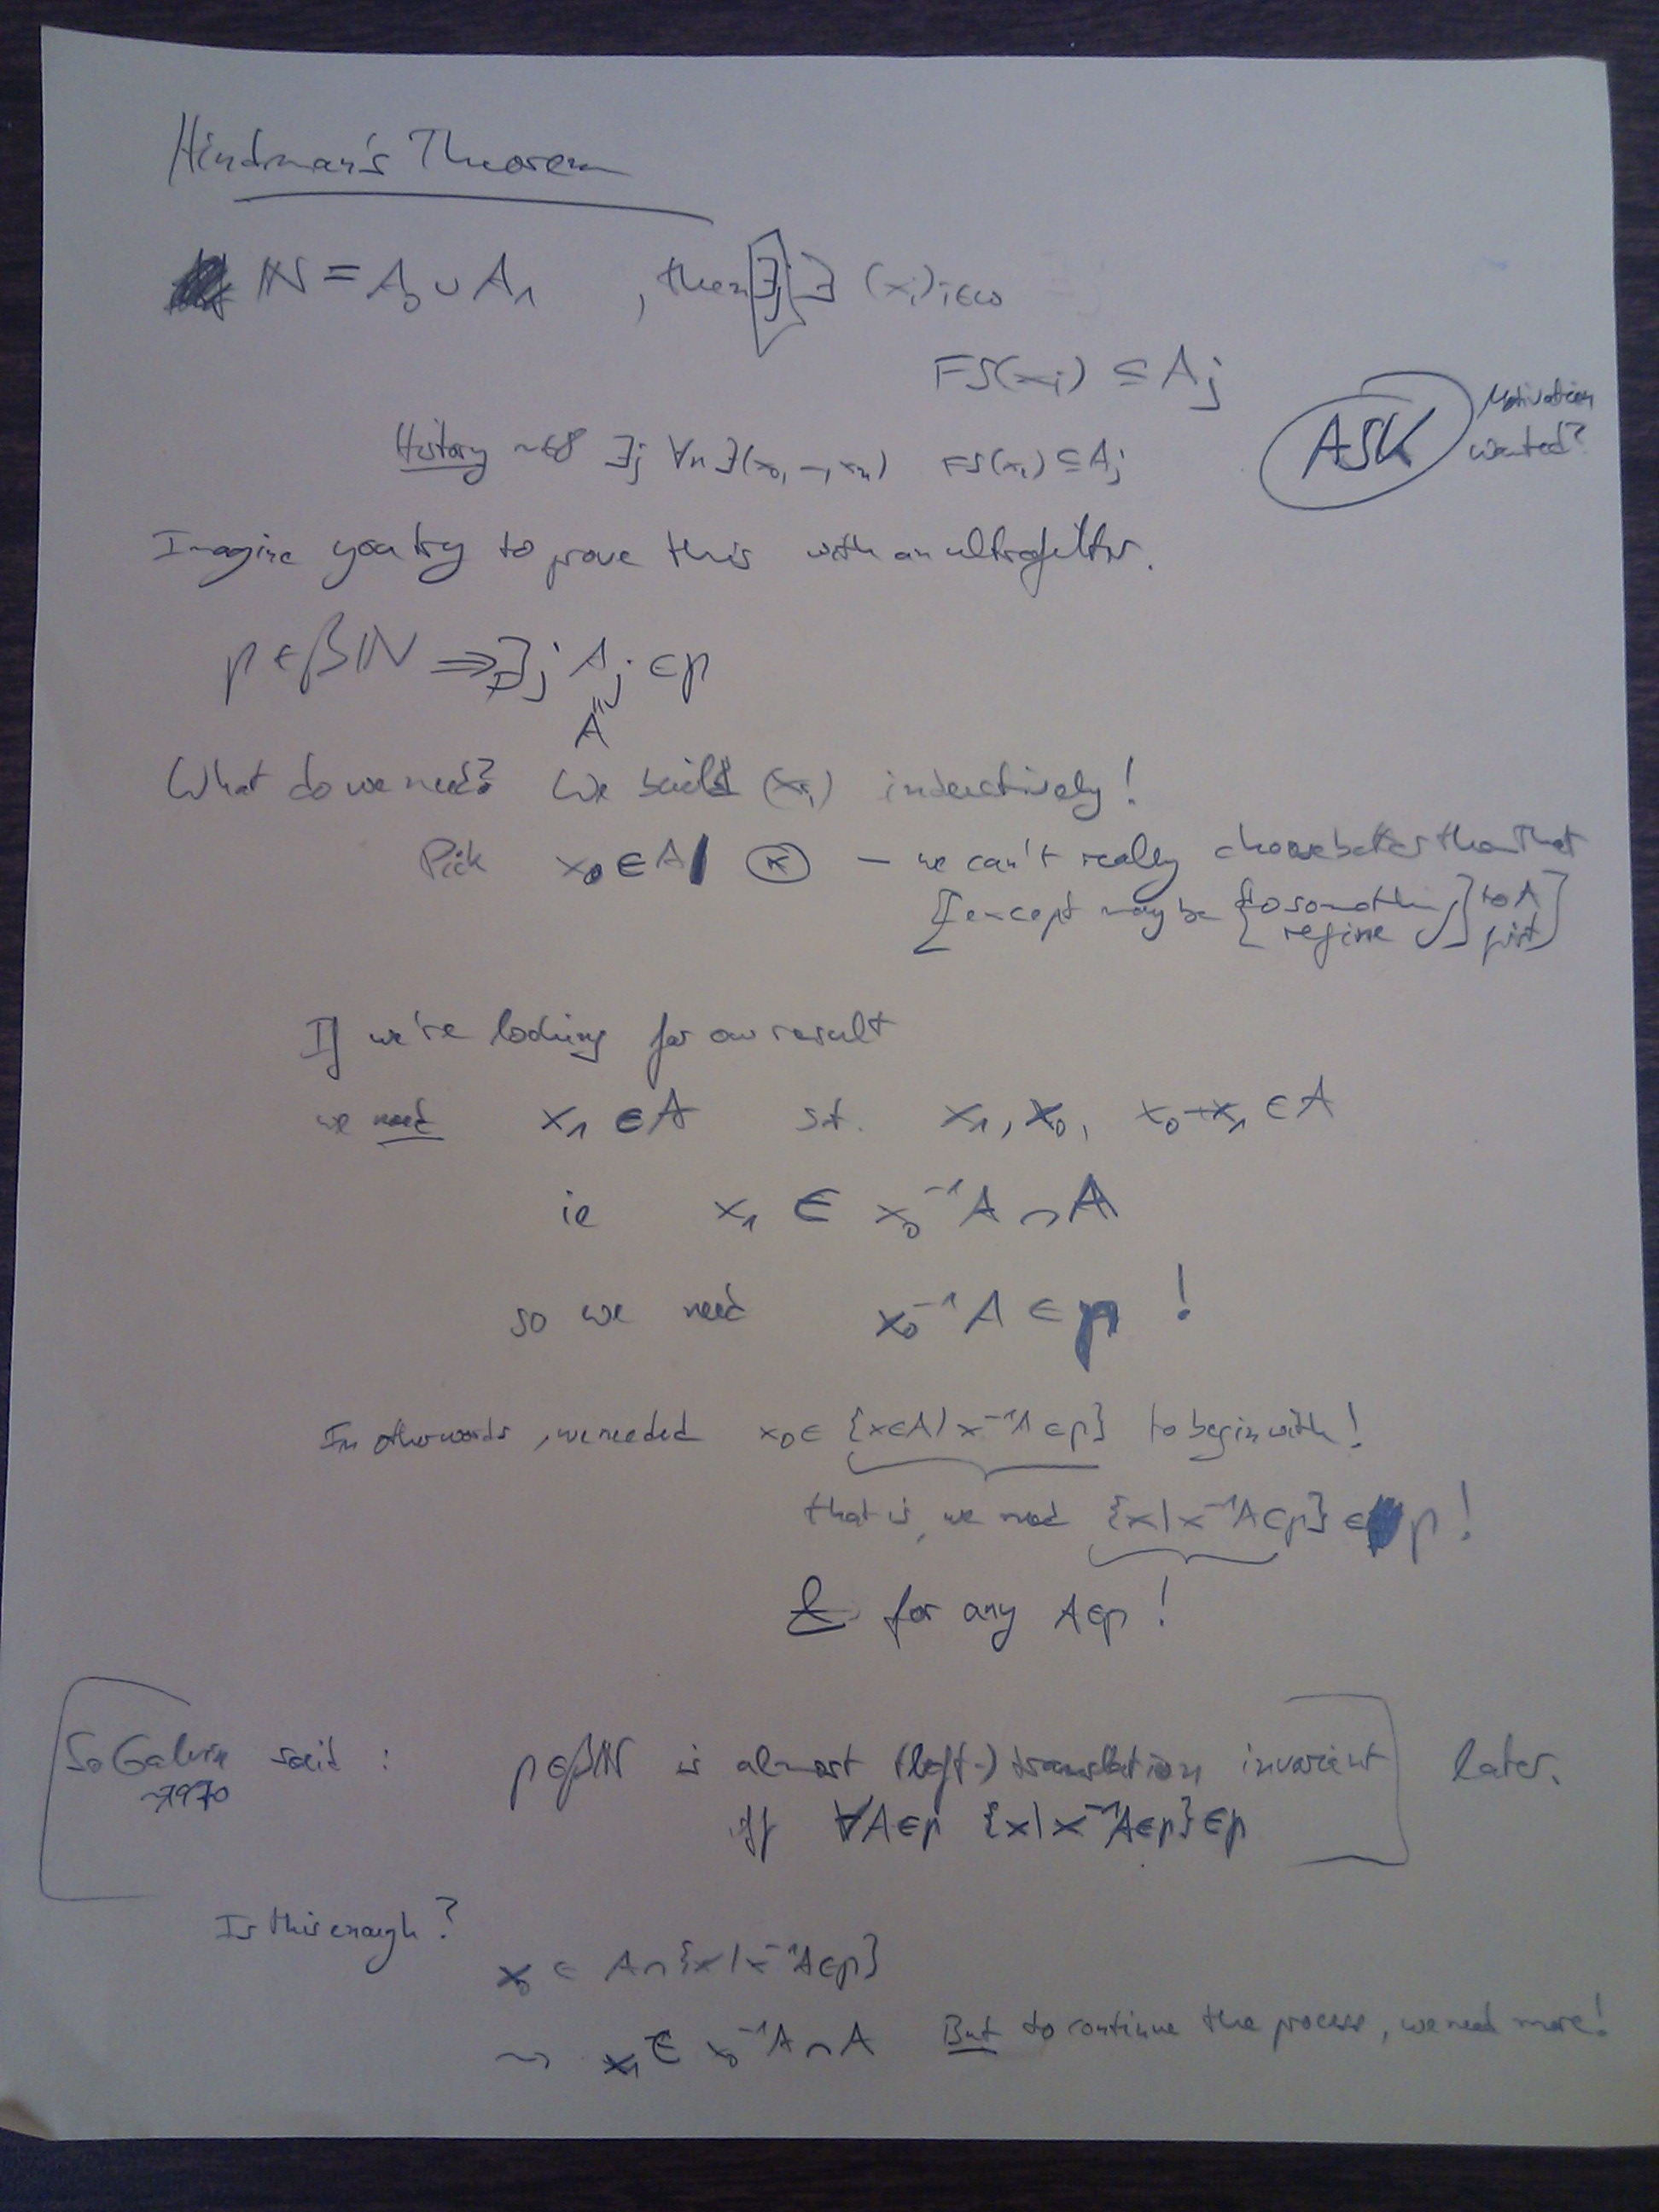 Hindman's Theorem
ℕ = A₀ ∪ A₁ , then ∃j ∃ (xᵢ)ᵢ∈ω
FS(xᵢ) ⊆ Aⱼ
ASK Motivation wanted?
History ~68 ∃j ∀n ∃(x₀, –, xₙ) FS(xᵢ) ⊆ Aⱼ
Imagine you try to prove this with an ultrafilter.
p ∈ βℕ ⇒ ∃j Aⱼ ∈ p
"
A
What do we need? We build (xᵢ) inductively!
Pick x₀ ∈ A – we can't really choose better than that
[except maybe {do something to A
refine first]
If we're looking for our result
we need x₁ ∈ A s.t. x₁, x₀, x₀+x₁ ∈ A
ie x₁ ∈ x₀⁻¹A ∩ A
so we need x₀⁻¹A ∈ p !
In other words, we needed x₀ ∈ {x∈A | x⁻¹A ∈ p} to begin with!
that is, we need {x | x⁻¹A ∈ p} ∈ p !
& for any A∈p !
[So Galvin said : p∈βℕ is almost (left-) translation invariant] later.
~1970
iff ∀A∈p {x | x⁻¹A∈p} ∈ p
Is this enough?
x₀ ∈ A∩{x | x⁻¹A∈p}
⇝ x₁ ∈ x₀⁻¹A ∩ A But to continue the process, we need more!